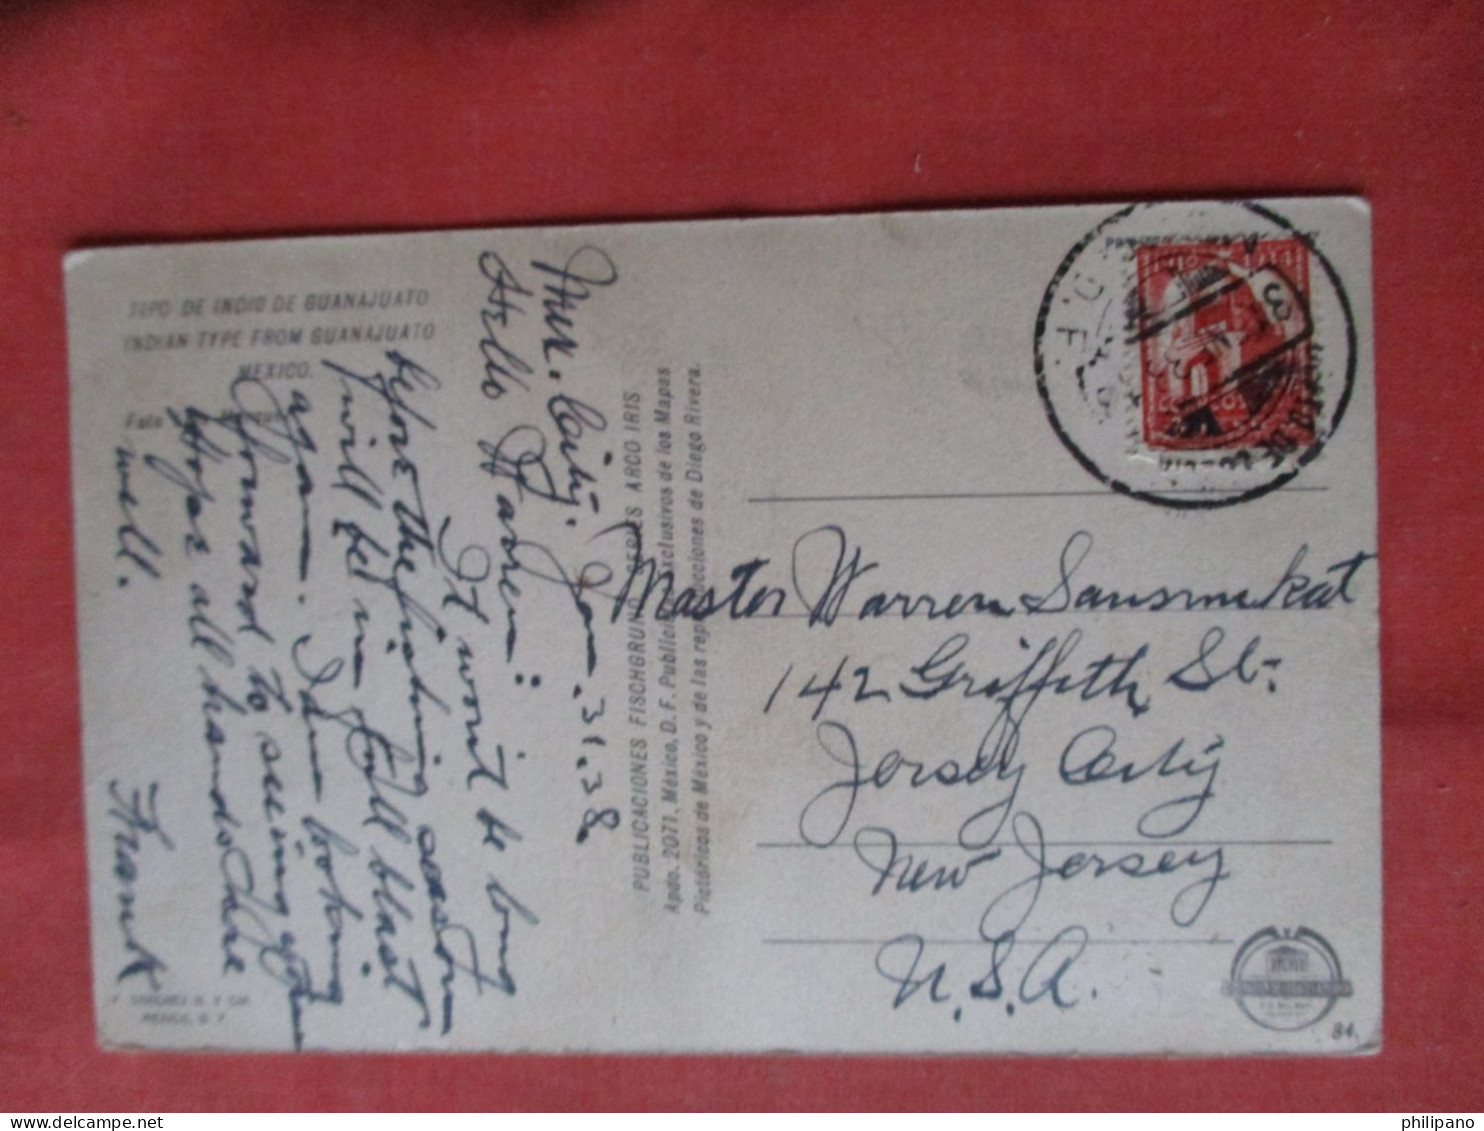 TIPO DE INDIO DE GUANAJUATO
INDIAN TYPE FROM GUANAJUATO
MEXICO.
Foto
Mex. City. Jan. 31. 38
Hello Warren:
It wont be long
before the fishing season
will be in full blast
again. I am looking
forward to seeing you
Hope all hands are
well.
Frank
F. SANCHEZ H. Y CIA.
MEXICO, D. F.
PUBLICACIONES FISCHGRUND SERIES ARCO IRIS
Apdo. 2071, México, D. F. Publica Exclusivos de los Mapas
Pictóricos de México y de las reproducciones de Diego Rivera.
D. F.
Master Warren Sansmukat
142 Griffith St.
Jersey City
New Jersey
U.S.A.
84.
philipano